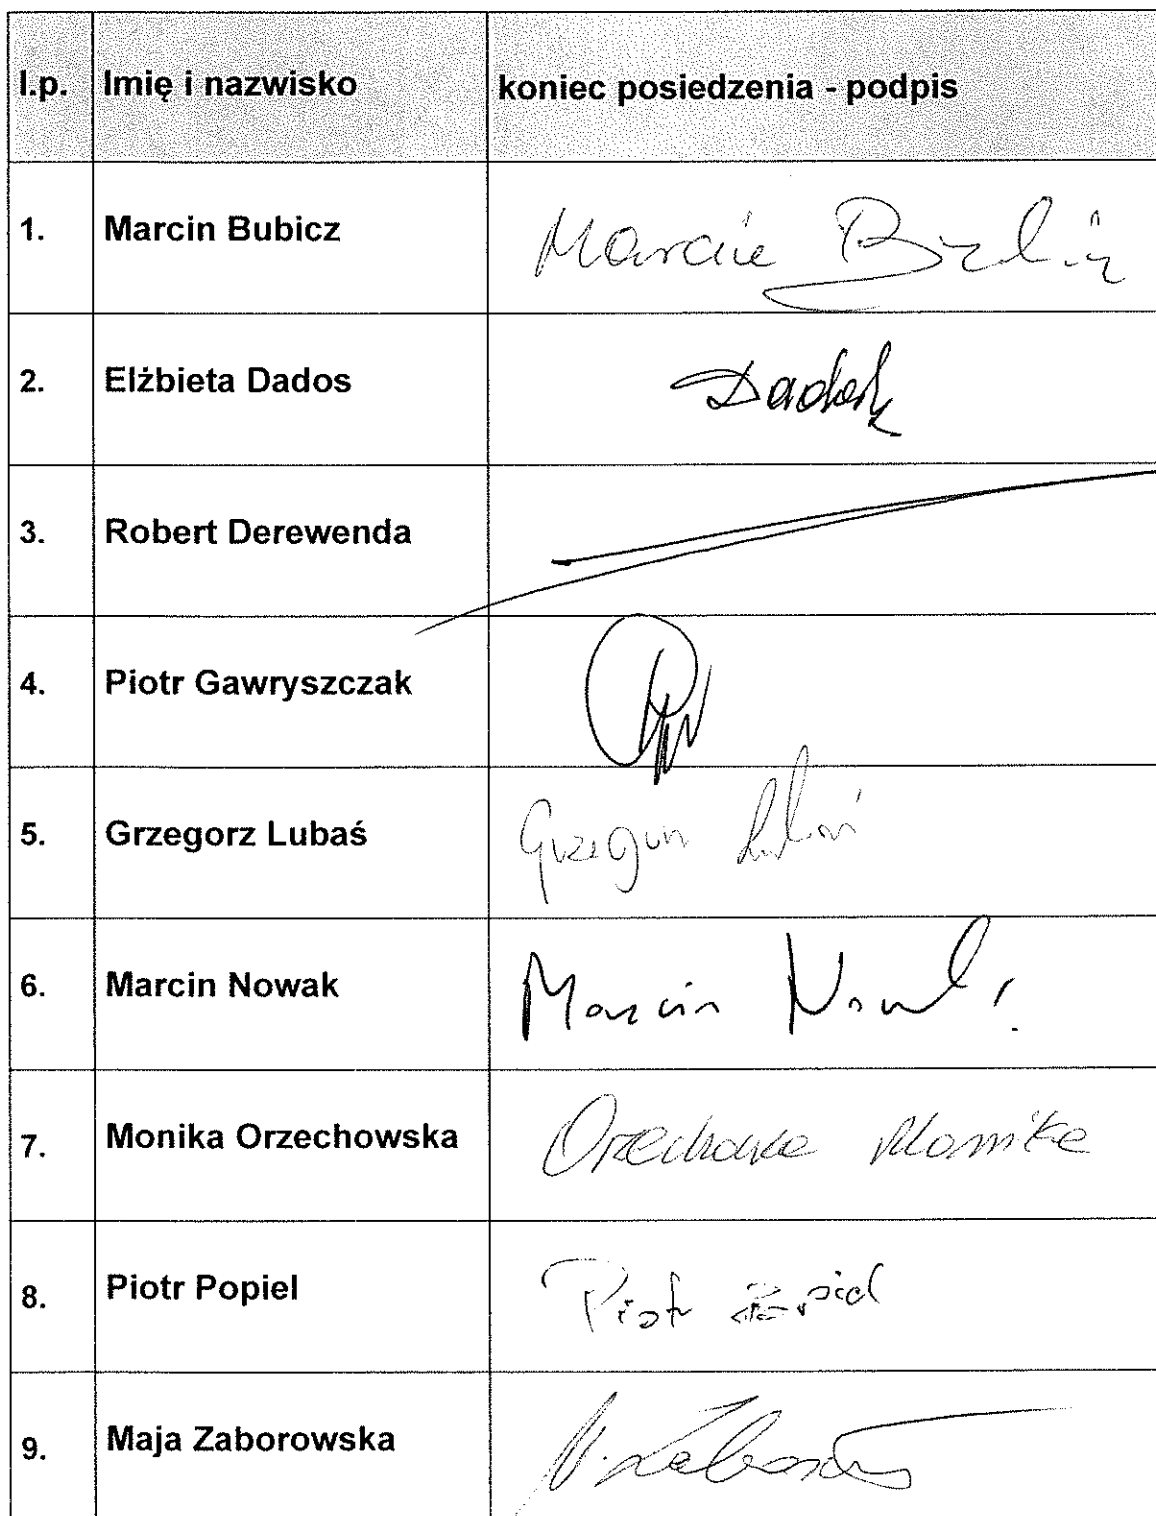 l.p. Imię i nazwisko koniec posiedzenia - podpis
1. Marcin Bubicz Marcin Bubicz
2. Elżbieta Dados Dados
3. Robert Derewenda
4. Piotr Gawryszczak
5. Grzegorz Lubaś Grzegorz Lubaś
6. Marcin Nowak Marcin Nowak
7. Monika Orzechowska Orzechowska Monika
8. Piotr Popiel Piotr Popiel
9. Maja Zaborowska M. Zaborowska